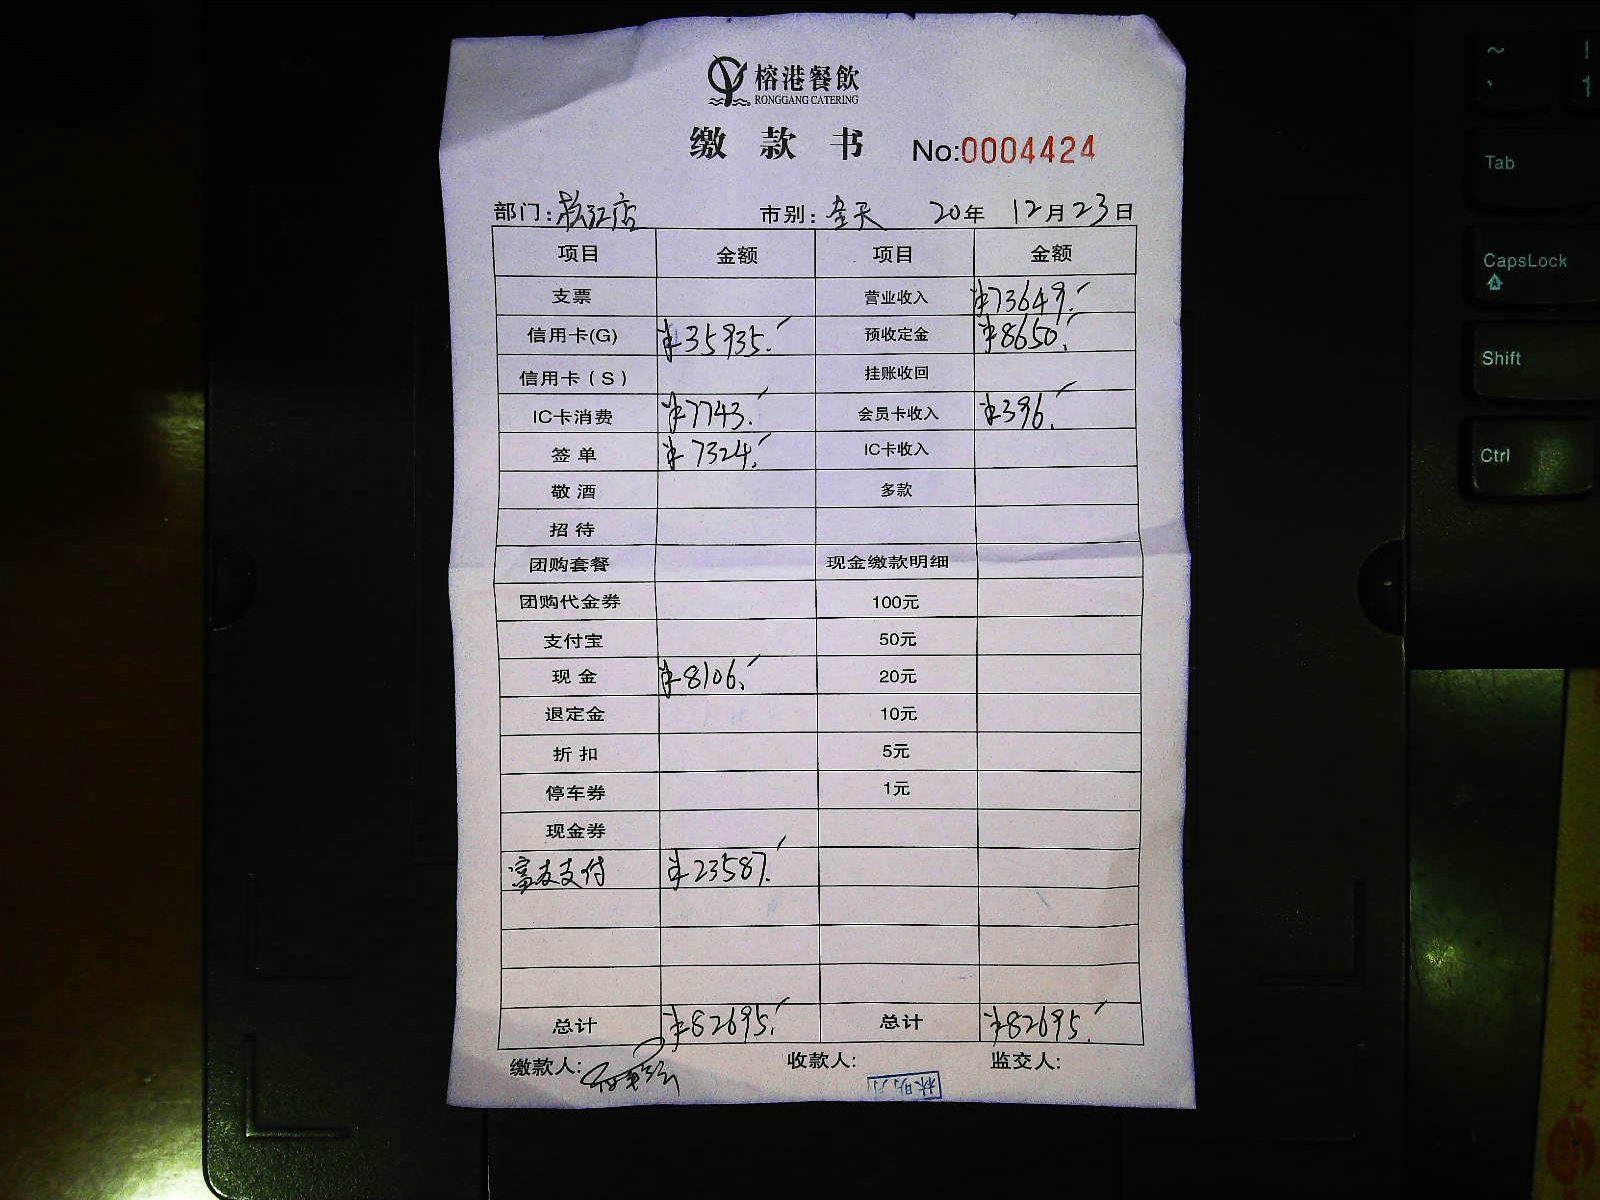 榕港餐飲
RONGGANG CATERING
缴 款 书 No:0004424
部门: 松江店 市别: 全天 20年 12月23日
项目 金额 项目 金额
支票 营业收入 ¥73649.
信用卡(G) ¥35935. 预收定金 ¥8650.
信用卡(S) 挂账收回
IC卡消费 ¥7743. 会员卡收入 ¥396.
签单 ¥7324. IC卡收入
敬酒 多款
招待
团购套餐 现金缴款明细
团购代金券 100元
支付宝 50元
现金 ¥8106. 20元
退定金 10元
折扣 5元
停车券 1元
现金券
富友支付 ¥23587.
总计 ¥82695. 总计 ¥82695.
缴款人: 收款人: 监交人:
林明月
~
、
!
1
Tab
CapsLock
A
Shift
Ctrl